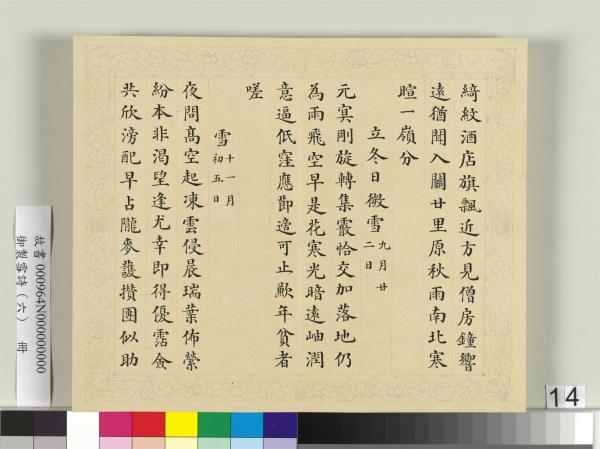 綺紋酒店旗飄近方見僧房鐘響
遠猶聞入關廿里原秋雨南北寒
暄一嶺分
立冬日微雪 九月廿二日
元冥剛旋轉集霰恰交加落地仍
為雨飛空早是花寒光暗遠岫潤
意逼低窪應節造可止歉年貧者
嗟
雪 十一月初五日
夜問高空起凍雲侵晨瑞葉佈縈
紛本非渴望逢尤幸即得優霑僉
共欣滂配早占隴麥護攢團似助
故書 000964N000000000
御製雪詩（六） 冊
14